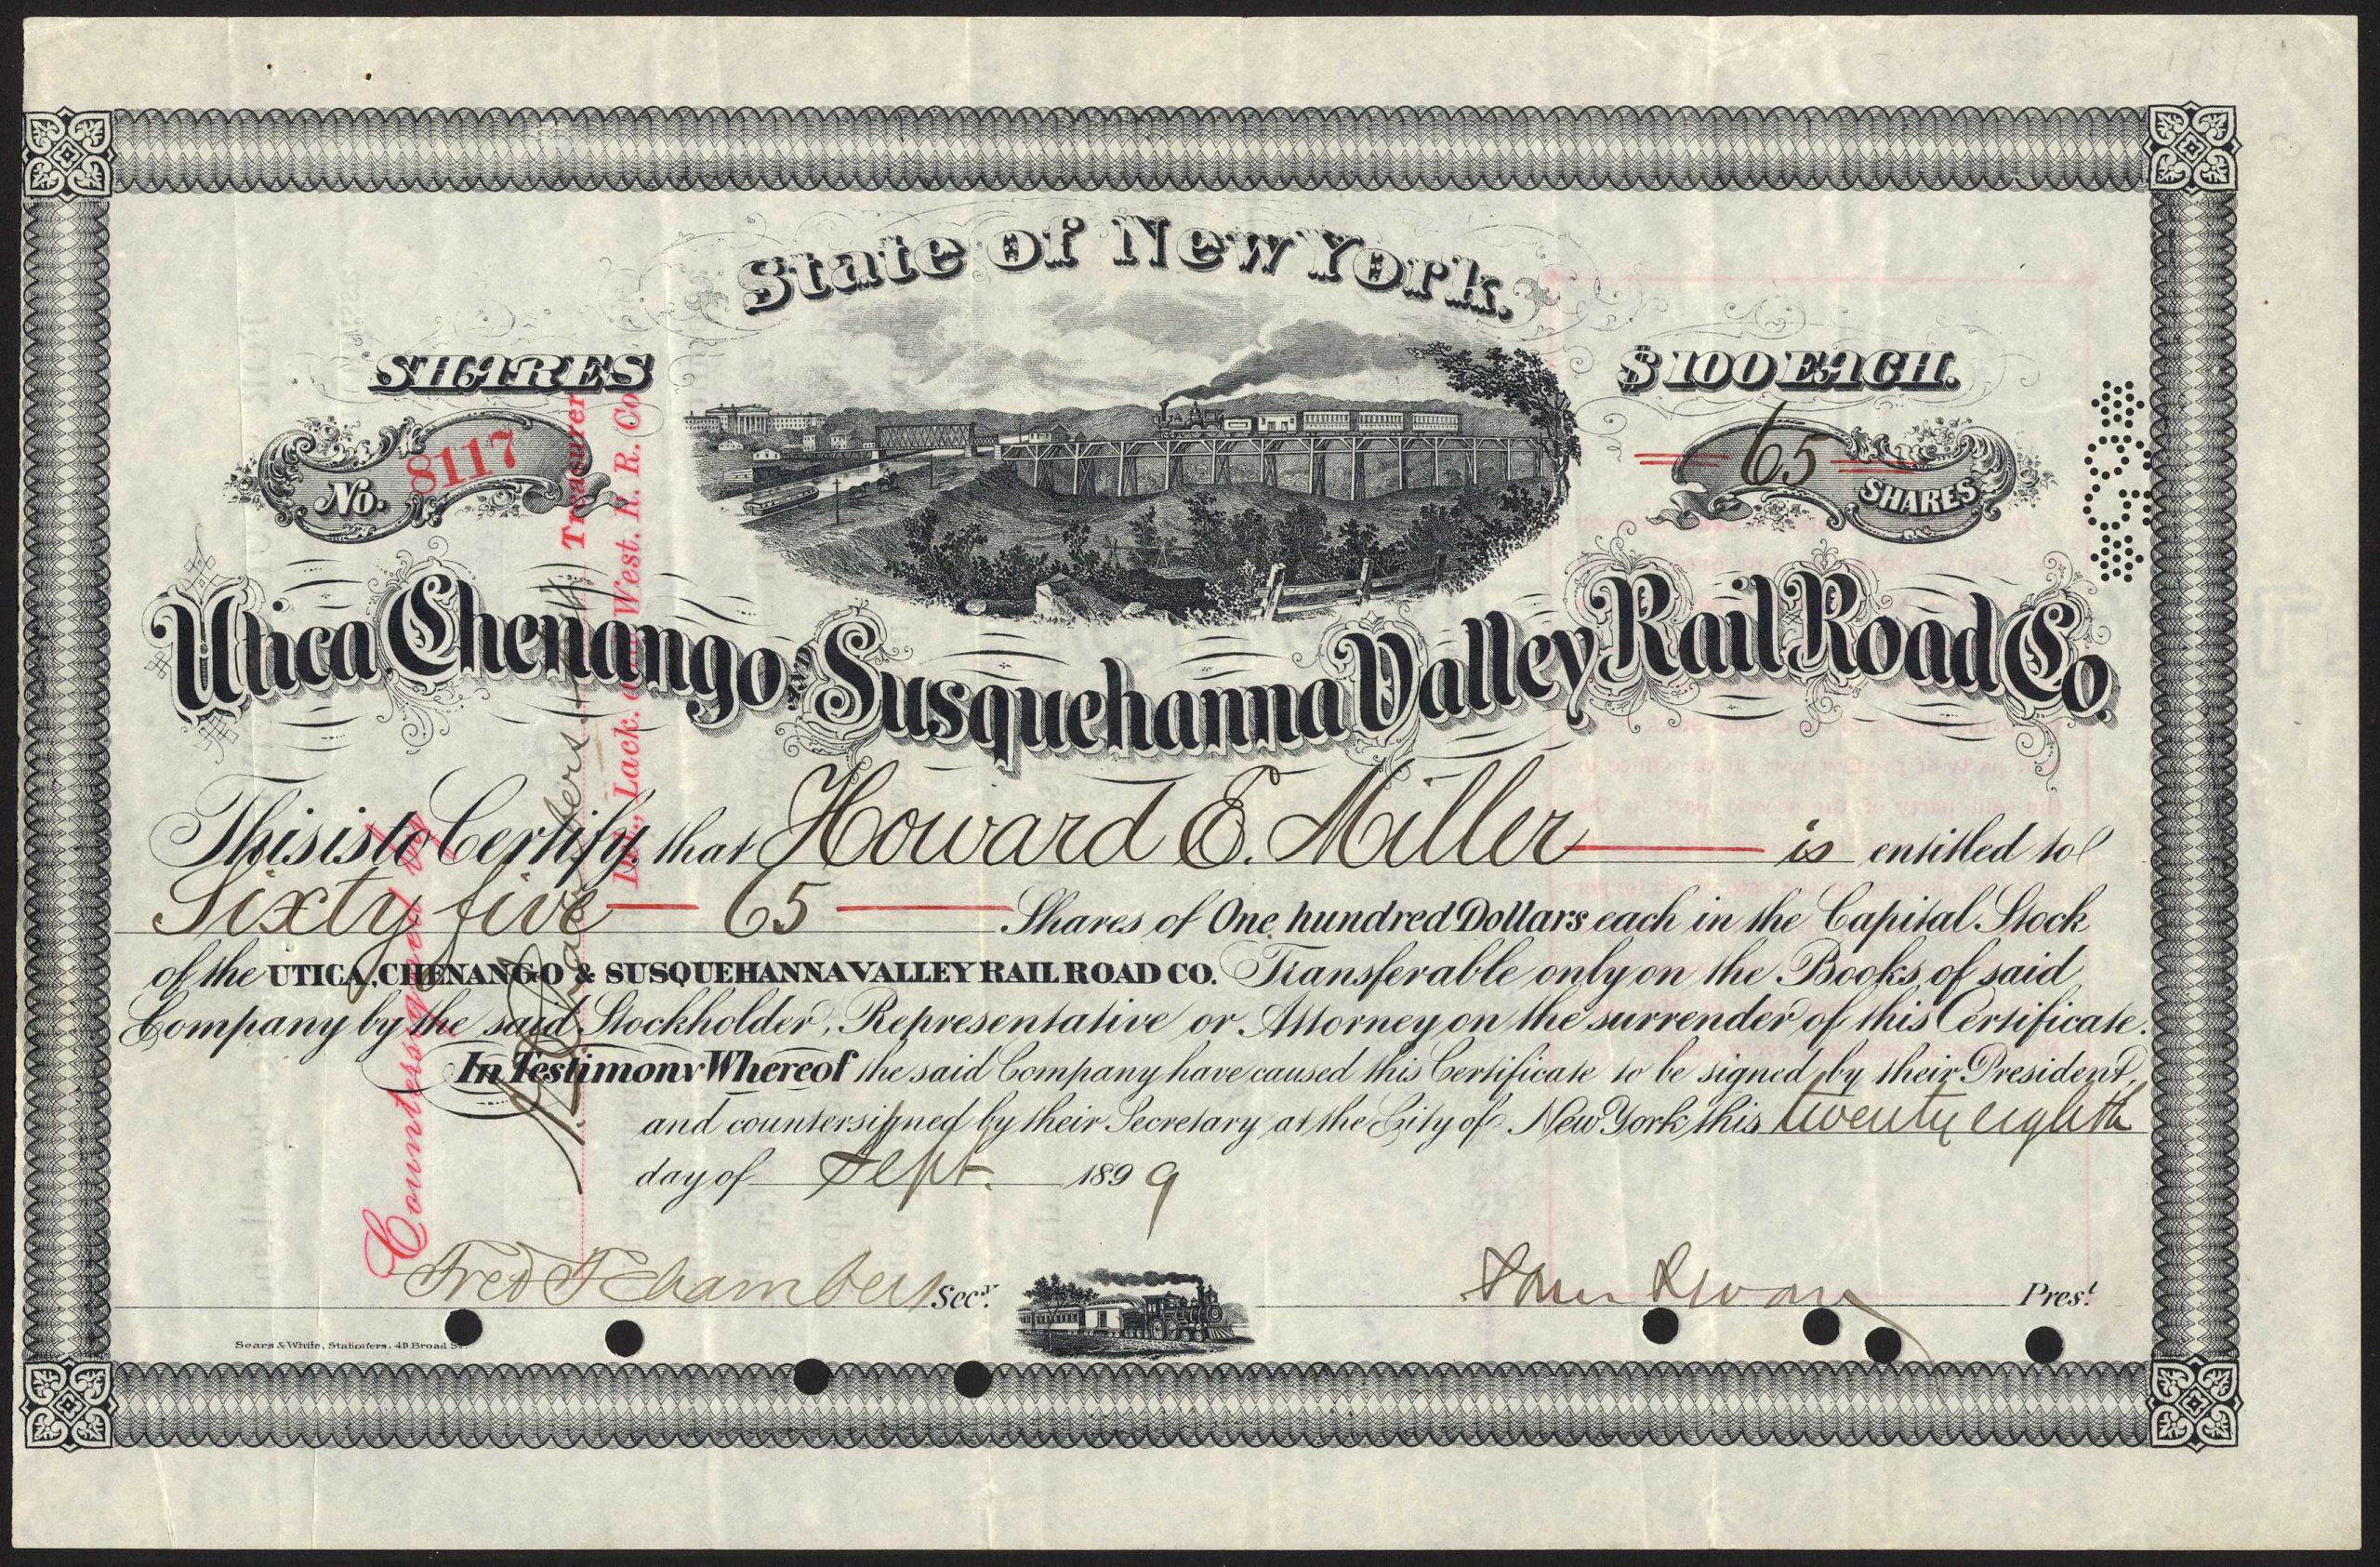 State of New York.
SHARES
$100 EACH.
No. 8117
65 SHARES
*65*
Utica, Chenango & Susquehanna Valley Rail Road Co.
This is to Certify, that Howard E. Miller is entitled to
Sixty five 65 Shares of One hundred Dollars each in the Capital Stock
of the UTICA, CHENANGO & SUSQUEHANNA VALLEY RAIL ROAD CO. Transferable only on the Books of said
Company by the said Stockholder, Representative or Attorney on the surrender of this Certificate.
In Testimony Whereof the said Company have caused this Certificate to be signed by their President,
and countersigned by their Secretary at the City of New York this twenty eighth
day of Sept. 1899
Fred F Chambers Secy.
Sam Sloan Prest.
Sears & White, Stationers, 49 Broad St.
Countersigned by
Treasurer
Del., Lack. and West. R. R. Co.